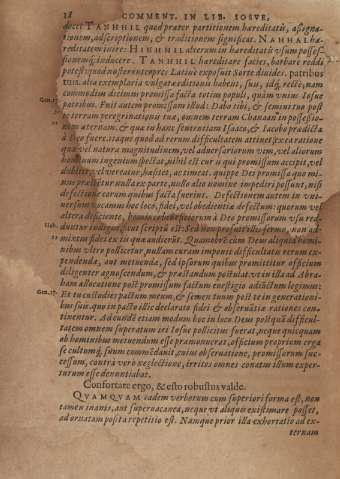 18 COMMENT. IN LIB. IOSVE,
docet TANHHIL quod præter partitionem hæreditatis, assigna-
tionem, adscriptionem, & traditionem significat. NANHAL hæ-
reditatem inire: HINHHIL alterum in hæreditatis vsum posses-
sionemq; inducere. TANHHIL hæreditare facies, barbare reddi
potest: quod nostrerentpres Latine exposuit Sorte diuides. patribus
tuis. alia exemplaria vulgatæ editionis habent, suis, idq; recte, nam
commodius dictum promissa facta & totius populi, quàm vnius Iosue
Gen.17. patribus. Fuit autem promissum illud: Dabo tibi, & semini tuo post
te terram peregrinationis tuæ, omnem terram Chanaan in possessio-
nem æternam. & qua in hanc sententiam Isaaco, & Iacobo prædicta
à Deo fuere. itaque quod ad rerum difficultatem attinet ex ea ratione
quæ vel natura magnitudinem, vel aduersariorum vim, vel aliorum
hominum ingenium spectat, nihil est cur is qui promissum accipit, vel
dubitet, vel vereatur, hæsitet, aut metuat. quippe Deo promissa quo mi-
nus præstetur nulla ex parte, nullo alio nomine impediri possunt, nisi
defectione eorum quibus facta fuerint. Defectionem autem in vni-
uersum vocamus hoc loco, fidei, vel obedientiæ defectum: quorum vel
altera deficiente, homines beneficiorum à Deo promissorum vsu red-
Heb. duntur indigni, sicut scriptū est: Sed non profuit illis sermo, non ad-
mixtus fidei ex iis quæ audierūt. Quamobrē cùm Deus aliquid homi-
nibus vltro pollicetur, nullam curam imponit difficultatis rerum ex-
pendendæ, aut metuendæ, sed ipsorum quibus promittitur officium
diligenter agnoscendum, & præstandum postulat. vt in illa ad Abra-
ham allocutione post promissum factum è vestigio adiūctum legimus:
Gen.17. Et tu custodies pactum meum, & semen tuum post te in generationi-
bus suis. quo in pacto isthic declarato fidei & obseruatiæ rationes con-
tinentur. Ad eundē etiam modum hoc in loco Deus postquā difficul-
tatem omnem superatum iri Iosue pollicitus fuerat, neque quicquam
ab hominibus metuendum esse præmonuerat, officium proprium erga
se cultumq́; suum commēdauit, cuius obseruatione, promissorum suc-
cessum, contrà verò neglectione, irritos omnes conatus istum exper-
turum esse denuntiabat.
Confortare ergo, & esto robustus valde.
QVAMQVAM eadem verborum cum superiori forma est, non
tamen inanis, aut superuacanea, neque vt aliquis existimare posset,
ad ornatum posita repetitio est. Namque prior illa exhortatio ad ex-
ternam